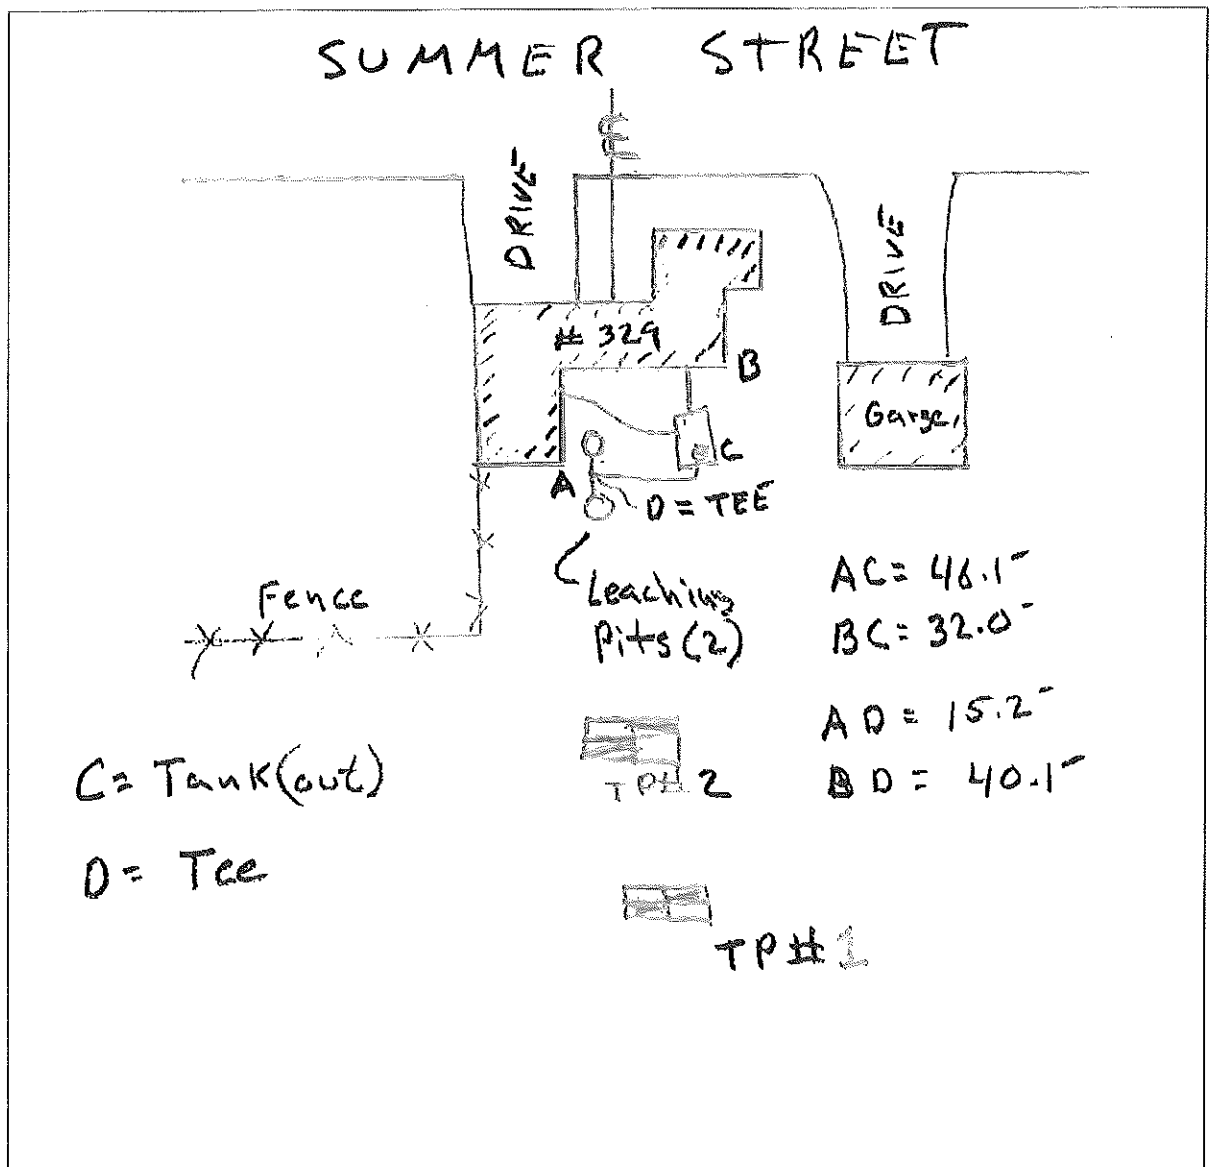 SUMMER STREET
DRIVE
DRIVE
# 329
B
Garge
C
A
D = TEE
Leaching
Pits (2)
Fence
AC = 46.1'
BC = 32.0'
AD = 15.2'
BD = 40.1'
TP# 2
C = Tank (out)
D = Tee
TP#1